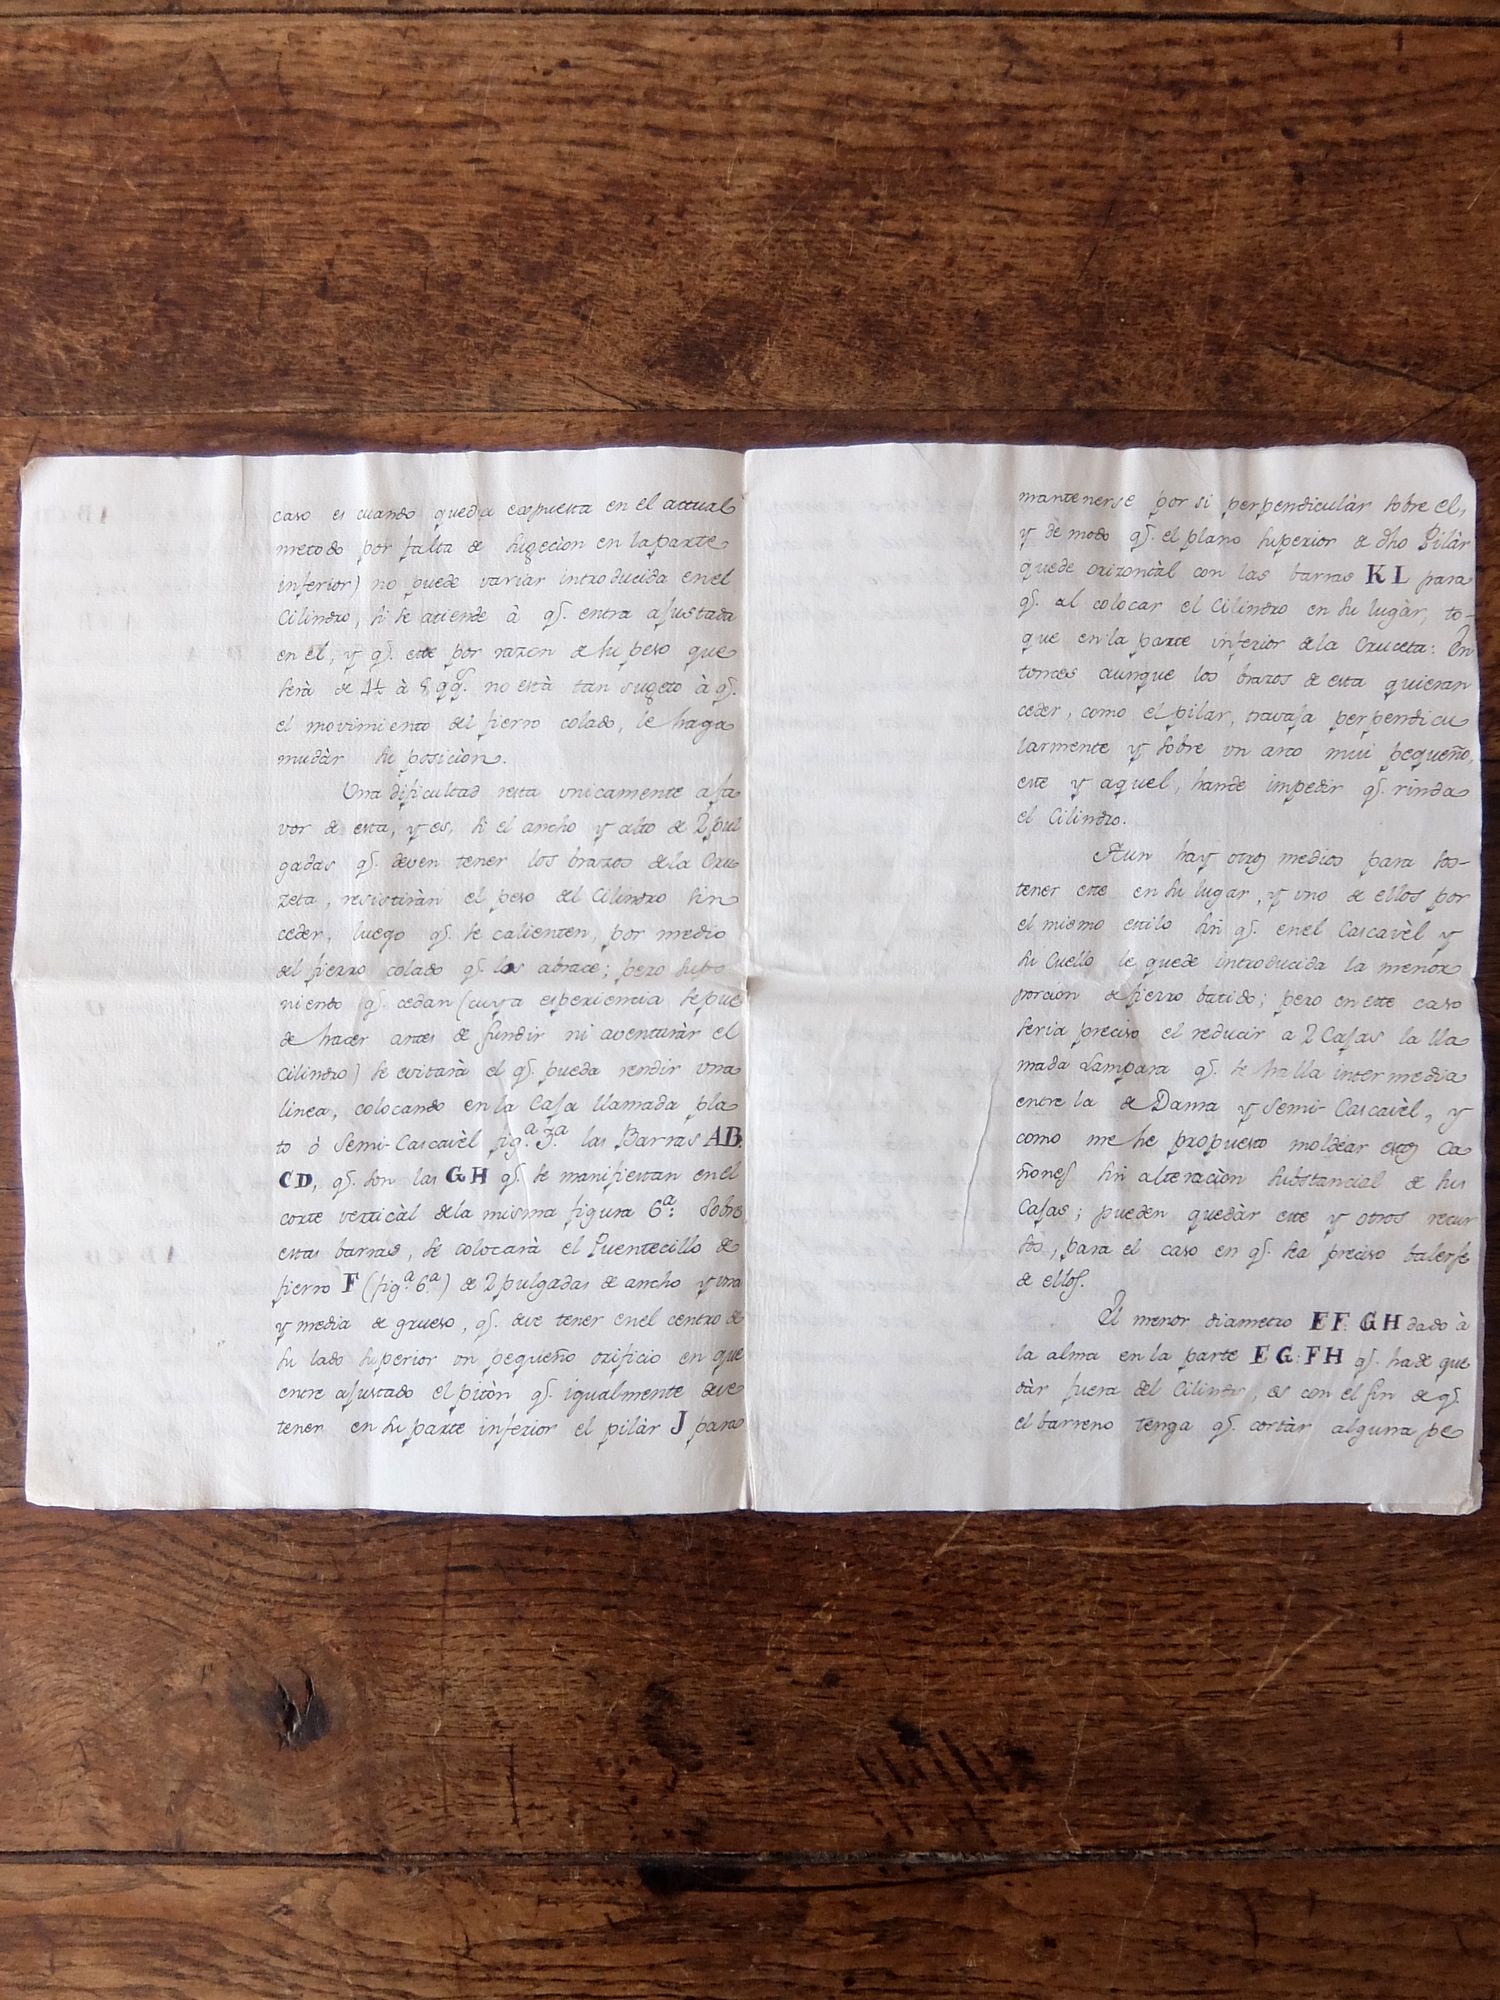 caso es cuando queda expuesta en el actual
metodo por falta de sugeciòn en la parte
inferior) no puede variar introducida en el
Cilindro, si se atiende à q.e entra ajustada
en el, y q.e este por razon de su peso que
serà de 4½ à 8 qq.s no està tan sugeto à q.e
el movimiento del fierro colado, le haga
mudàr su posiciòn.
Una dificultad resta unicamente a fa
vor de esta, y es, si el ancho y alto de 2 pul
gadas q.e deven tener los brazos de la Cru
zeta, resistiràn el peso del Cilindro sin
ceder, luego q.e se calienten, por medio
del fierro colado q.e los abrace; pero supo
niendo q.e cedan (cuya esperiencia se pue
de hacer antes de fundir ni aventuràr el
Cilindro) se evitarà el q.e pueda rendir una
linea, colocando en la Caja llamada pla
to ò Semi-Cascavèl fig.a 3.a las Barras AB.
CD, q.e son las GH q.e se manifiestan en el
corte verticàl de la misma figura 6.a: Sobre
estas barras, se colocarà el Puentecillo de
fierro F (fig.a 6.a) de 2 pulgadas de ancho y una
y media de grueso, q.e deve tener en el centro de
su lado superior un pequeño orificio en que
entre ajustado el pitòn q.e igualmente deve
tener en su parte inferior el pilàr J para
mantenerse por si perpendiculàr sobre el,
y de modo q.e el plano superior de dho Pilàr
quede orizontàl con las barras KL para
q.e al colocar el Cilindro en su lugàr, to-
que en la parte inferior de la Cruceta: En
tonces aunque los brazos de esta quieran
ceder, como el pilar, travaja perpendicu
larmente y sobre un arco mui pequeño,
este y aquel, han de impedir q.e rinda
el Cilindro.
Aun hay otros medios para sos-
tener este en su lugar, y uno de ellos por
el mismo estilo sin q.e en el Cascavèl y
su Cuello le quede introducida la menor
porcion de fierro batido; pero en este caso
seria preciso el reducir a 2 Cajas la lla
mada Lampara q.e se halla intermedia
entre la de Dama y Semi-Cascavèl, y
como me he propuesto moldéar estos Ca
ñones sin alteraciòn substancial de sus
Cajas; pueden quedàr este y otros recur
sos, para el caso en q.e sea preciso balerse
de ellos.
El menor diametro EF: GH dado à
la alma en la parte EG: FH q.e ha de que
dàr fuera del Cilindro, es con el fin de q.e
el barreno tenga q.e cortàr alguna pe